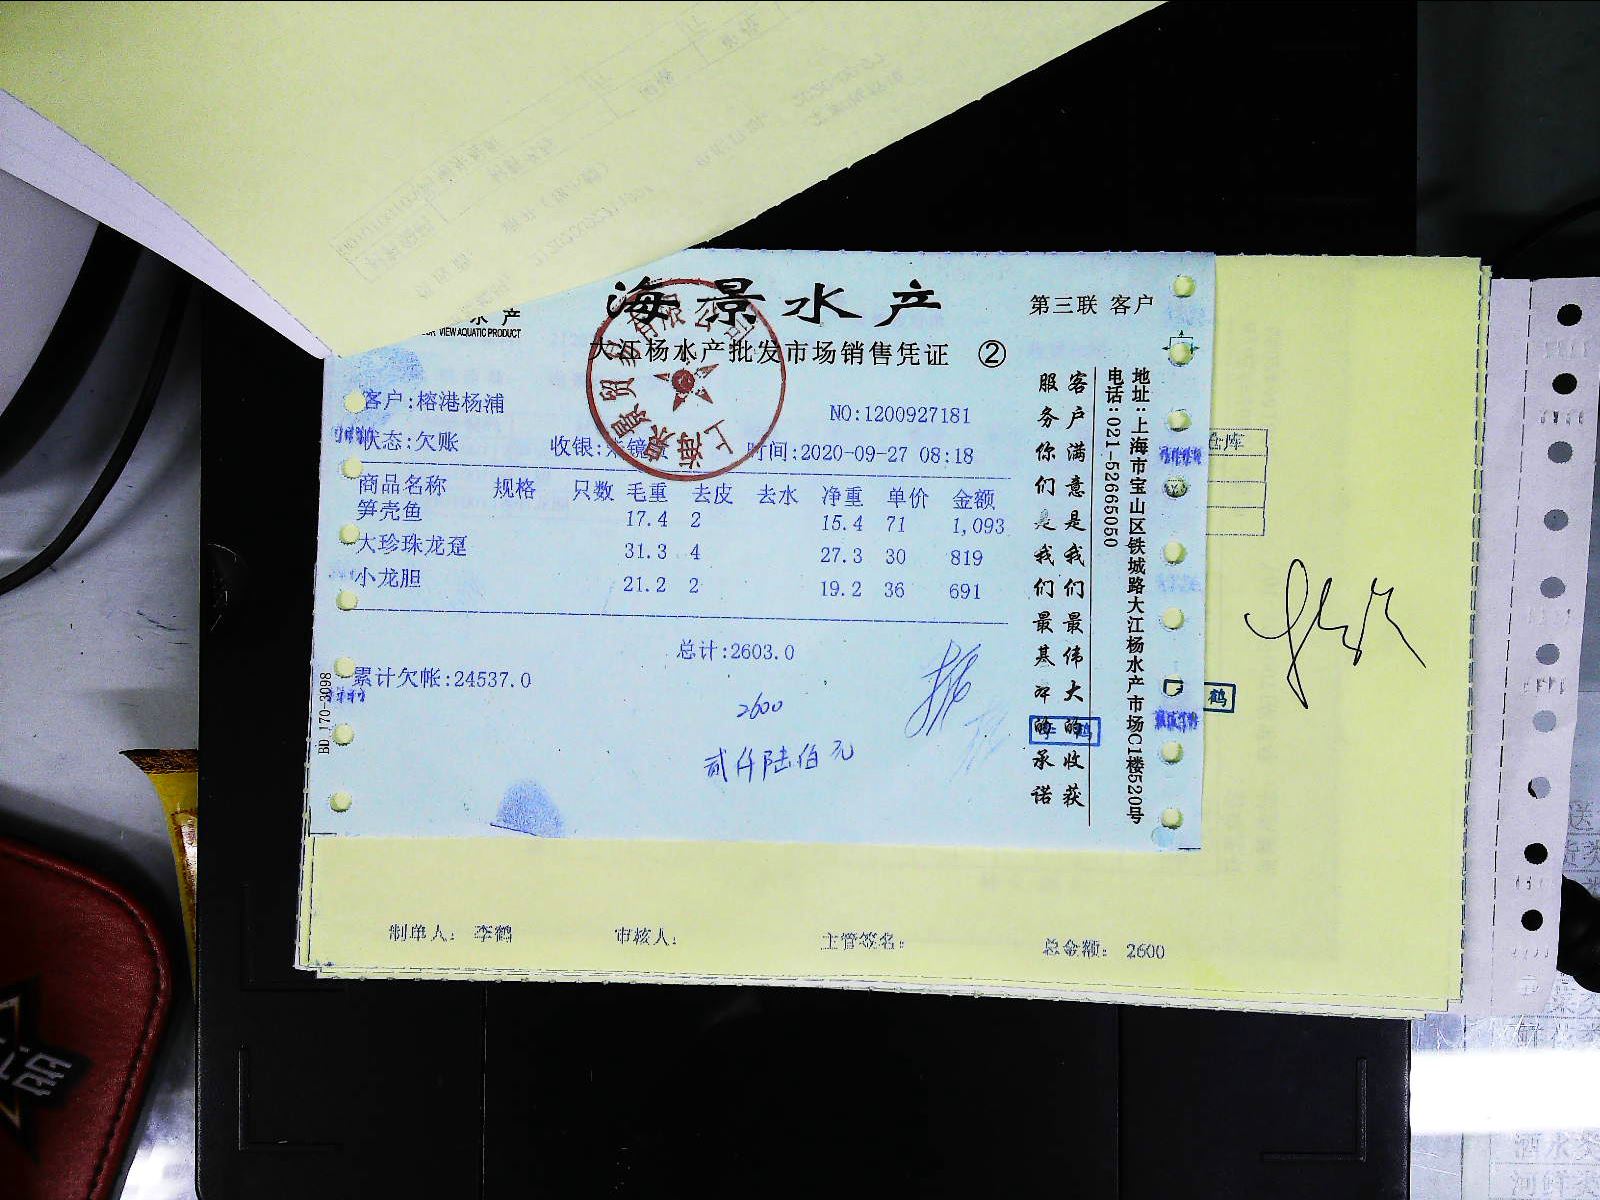 海景水产
第三联 客户
水产
VIEW AQUATIC PRODUCT
大江杨水产批发市场销售凭证 ②
客户:榕港杨浦
NO:1200927181
状态:欠账
收银:
时间:2020-09-27 08:18
商品名称 规格 只数 毛重 去皮 去水 净重 单价 金额
笋壳鱼 17.4 2 15.4 71 1,093
大珍珠龙趸 31.3 4 27.3 30 819
小龙胆 21.2 2 19.2 36 691
总计:2603.0
累计欠帐:24537.0
2600
贰仟陆佰元
客户满意是我们最伟大的收获
服务你们是我们最基本的承诺
地址:上海市宝山区铁城路大江杨水产市场C1楼520号
电话:021-52665050
BD 170-3098
仓库
鹤
制单人: 李鹤
审核人:
主管签名:
总金额: 2600
酒水类
河鲜类